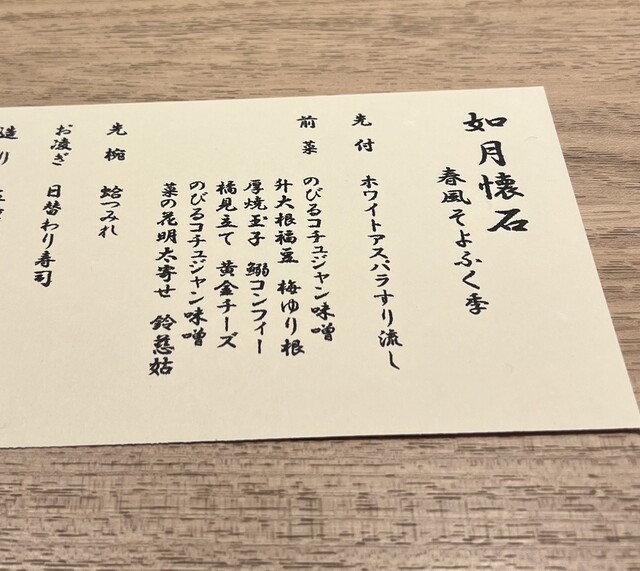 如月懐石
春風そよふく季
先付 ホワイトアスパラすり流し
前菜 のびるコチュジャン味噌
升大根福豆 梅ゆり根
厚焼玉子 鰯コンフィー
橘見立て 黄金チーズ
のびるコチュジャン味噌
菜の花明太寄せ 鈴慈姑
先椀 蛤つみれ
お凌ぎ 日替わり寿司
造り